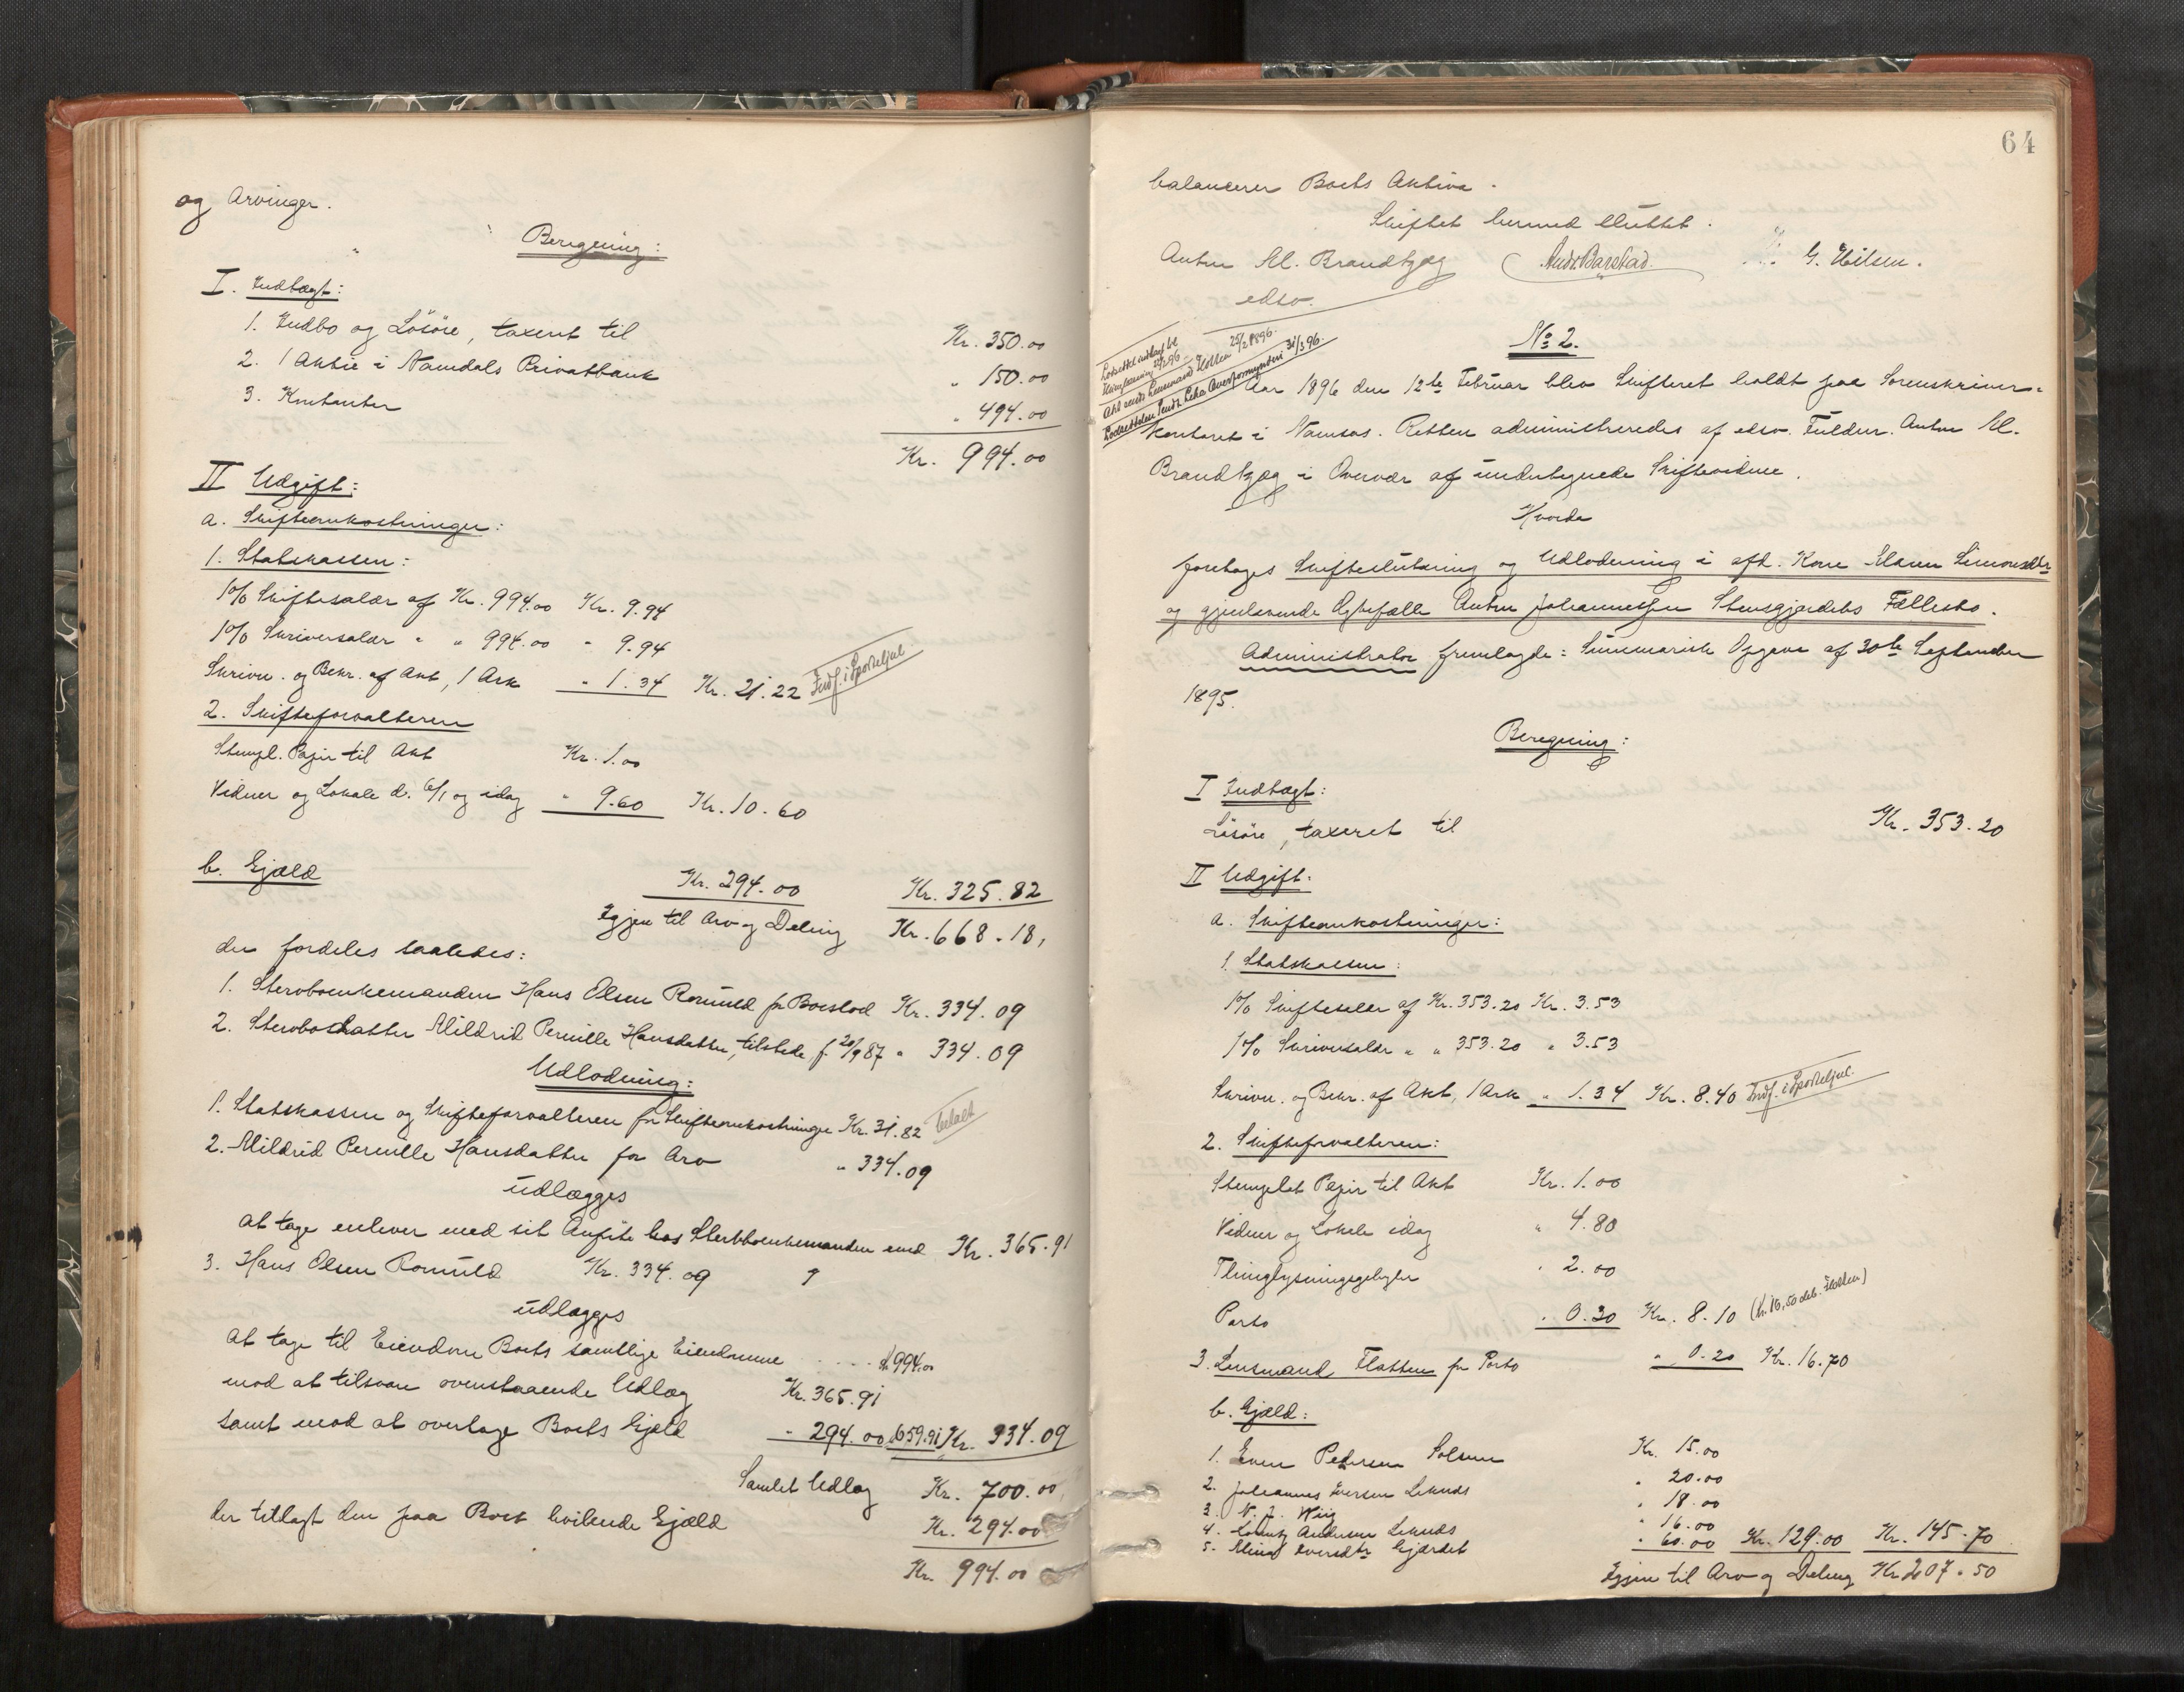 og Arvinger.
Beregning:
I. Indtægt:
1. Indbo og Løsøre, taxeret til Kr. 350.00
2. 1 Aktie i Namdals Privatbank " 150.00
3. Kontanter " 494.00
Kr. 994.00
II Udgift:
a. Skifteomkostninger:
1. Statskassen:
1% Skiftesalær af Kr. 994.00 Kr. 9.94
1% Skriversalær " " 994.00 " 9.94
Skrivn. og Bekr. af Akt, 1 Ark " 1.34 Kr. 21.22 Indf. i Sporteljnl.
2. Skifteforvalteren
Stempl. Papir til Akt Kr. 1.00
Vidner og Lokale d. 6/1 og idag " 9.60 Kr. 10.60
b. Gjæld Kr. 294.00 Kr. 325.82
Igjen til Arv og Deling Kr. 668.18,
der fordeles saaledes:
1. Stervboenkemanden Hans Olsen Romuld fr Boeslod Kr. 334.09
2. Stervbodatter Mildrid Pernille Hansdatter, tilstede, f. 20/9 87 " 334.09
Udlodning:
1. Statskassen og Skifteforvalteren for Skifteomkostninger Kr. 31.82 betalt
2. Mildrid Pernille Hansdatter for Arv " 334.09
udlægges
at tage enhver med sit Anpite hos Stervboenkemanden med Kr. 365.91
3. Hans Olsen Romuld Kr. 334.09
udlægges
at tage til Eiendom Boets samtlige Eiendomme .... Kr 994.00
mod at tilsvare ovenstaaende Udlæg Kr. 365.91
samt mod at overtage Boets Gjæld " 294.00 659.91 Kr. 334.09
Samlet Udlæg Kr. 700.00
der tillagt den paa Boet hvilende Gjæld Kr. 294.00
Kr. 994.00
64
balancerer Boets Aktiva.
Skiftet hermed sluttet.
Anton M. Brandtzæg Andr Barstad G. Nilsen.
edsv.
No 2.
Aar 1896 den 12te Februar blev Skifteret holdt paa Sorenskriver-
kontoret i Namsos. Retten administreredes af edsv. Fuldm. Anton M.
Brandtzæg i Overvær af undertegnede Skiftevidner.
Hvorda
foretoges Skifteslutning og Udlodning i afd. Kone Maren Simonsdtr
og gjenlevende Ægtefælle Anton Johannessen Stensgjerdets Fællesbo.
Administrator fremlagde: Summarisk Opgave af 30te September
1895.
Beregning:
I Indtægt:
Løsøre, taxeret til Kr. 353.20
II Udgift.
a. Skifteomkostninger:
1. Statskassen:
1% Skiftesalær af Kr. 353.20 Kr. 3.53
1% Skriversalær " " 353.20 " 3.53
Skrivn. og Bekr. af Akt, 1 Ark " 1.34 Kr. 8.40 Indf. i Sporteljnl.
2. Skifteforvalteren:
Stemplet Papir til Akt Kr. 1.00
Vidner og Lokale idag " 4.80
Thinglysningsgebyr " 2.00
Porto " 0.30 Kr. 8.10 (Kr. 16,50 deb. Flotten)
3. Lensmand Flotten for Porto " 0.20 Kr. 16.70
b. Gjæld:
1. Even Pedersen Solum Kr. 15.00
2. Johannes Iversen Leknes " 20.00
3. N. J. Wiig " 18.00
4. Andersen Leknes " 16.00
5. Iversdtr Gjærdet " 60.00 Kr. 129.00 Kr. 145.70
Igjen til Arv og Deling Kr. 207.50